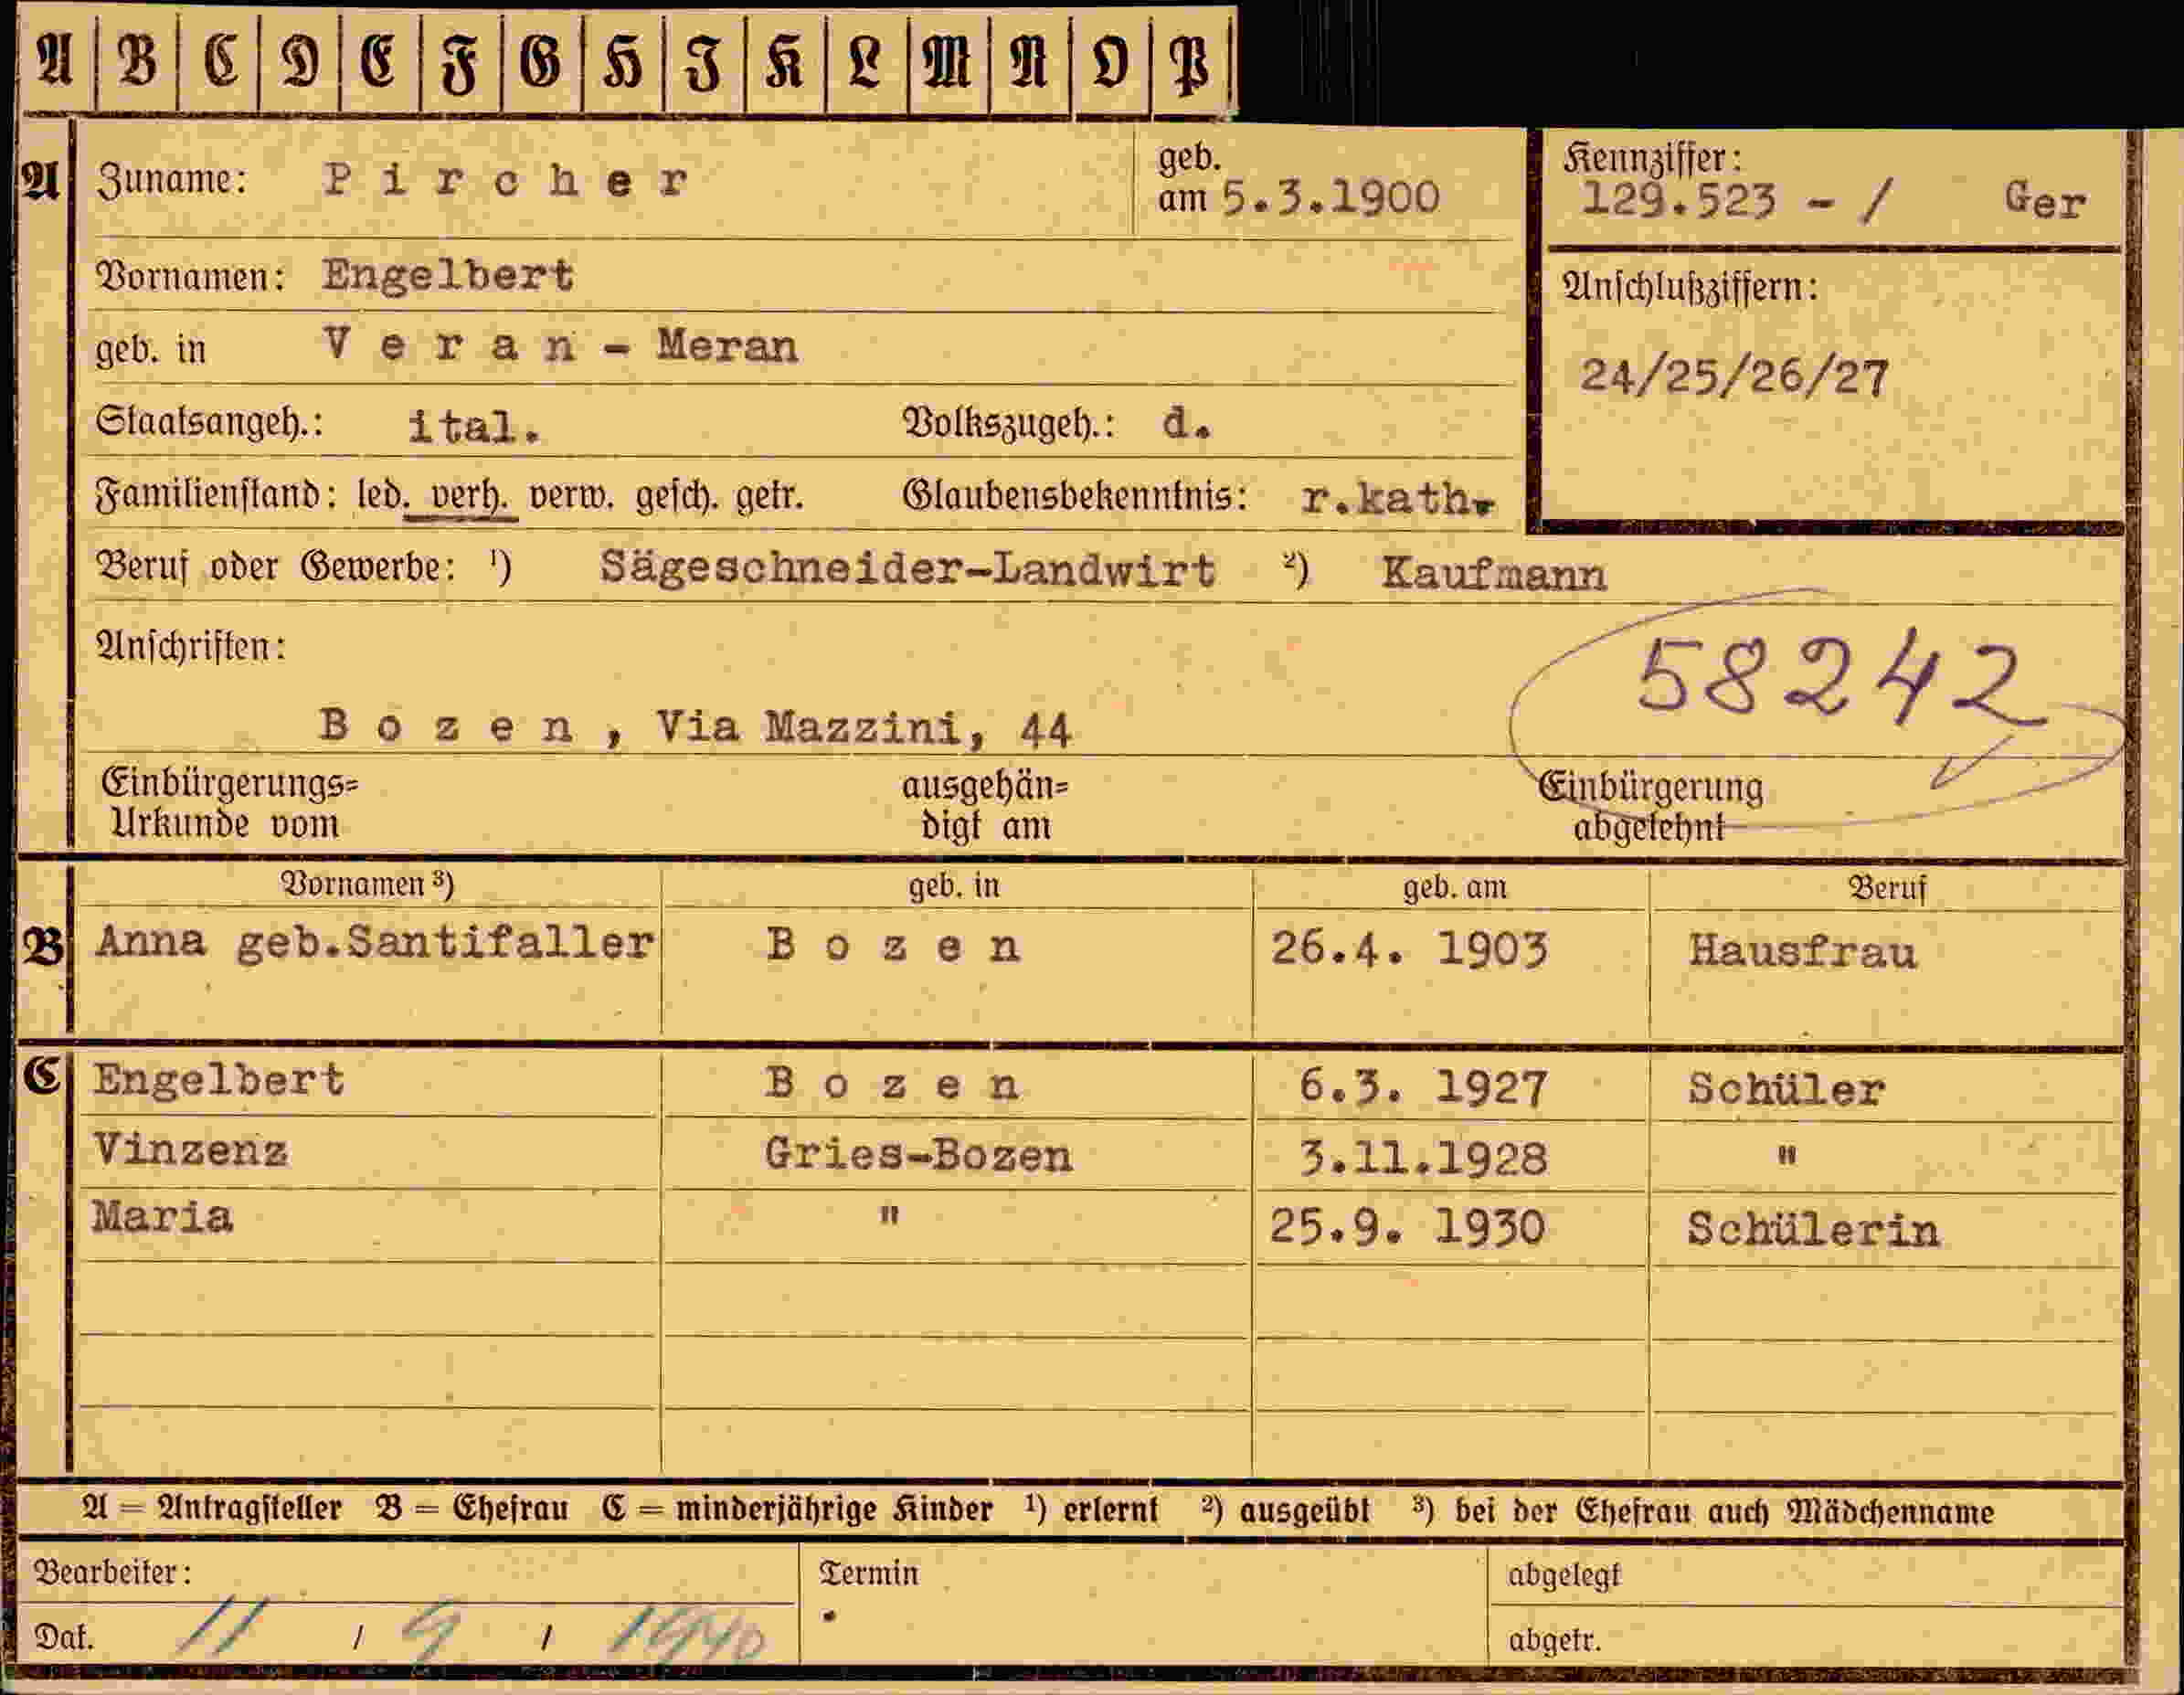 A B C D E F G H I K L M N O P
A Zuname: Pircher geb. am 5.3.1900 Kennziffer: 129.523 - / Ger
Vornamen: Engelbert Anschlußziffern:
geb. in Veran - Meran 24/25/26/27
Staatsangeh.: ital. Volkszugeh.: d.
Familienstand: led. verh. verw. gesch. getr. Glaubensbekenntnis: r.kath.
Beruf oder Gewerbe: 1) Sägeschneider-Landwirt 2) Kaufmann
Anschriften: 58242
Bozen, Via Mazzini, 44
Einbürgerungs= ausgehän= Einbürgerung
Urkunde vom digt am abgelehnt
Vornamen 3) geb. in geb. am Beruf
B Anna geb.Santifaller Bozen 26.4. 1903 Hausfrau
C Engelbert Bozen 6.3. 1927 Schüler
Vinzenz Gries-Bozen 3.11.1928 "
Maria " 25.9. 1930 Schülerin
A = Antragsteller B = Ehefrau C = minderjährige Kinder 1) erlernt 2) ausgeübt 3) bei der Ehefrau auch Mädchenname
Bearbeiter: Termin abgelegt
Dat. 11 / 9 / 1940 abgetr.